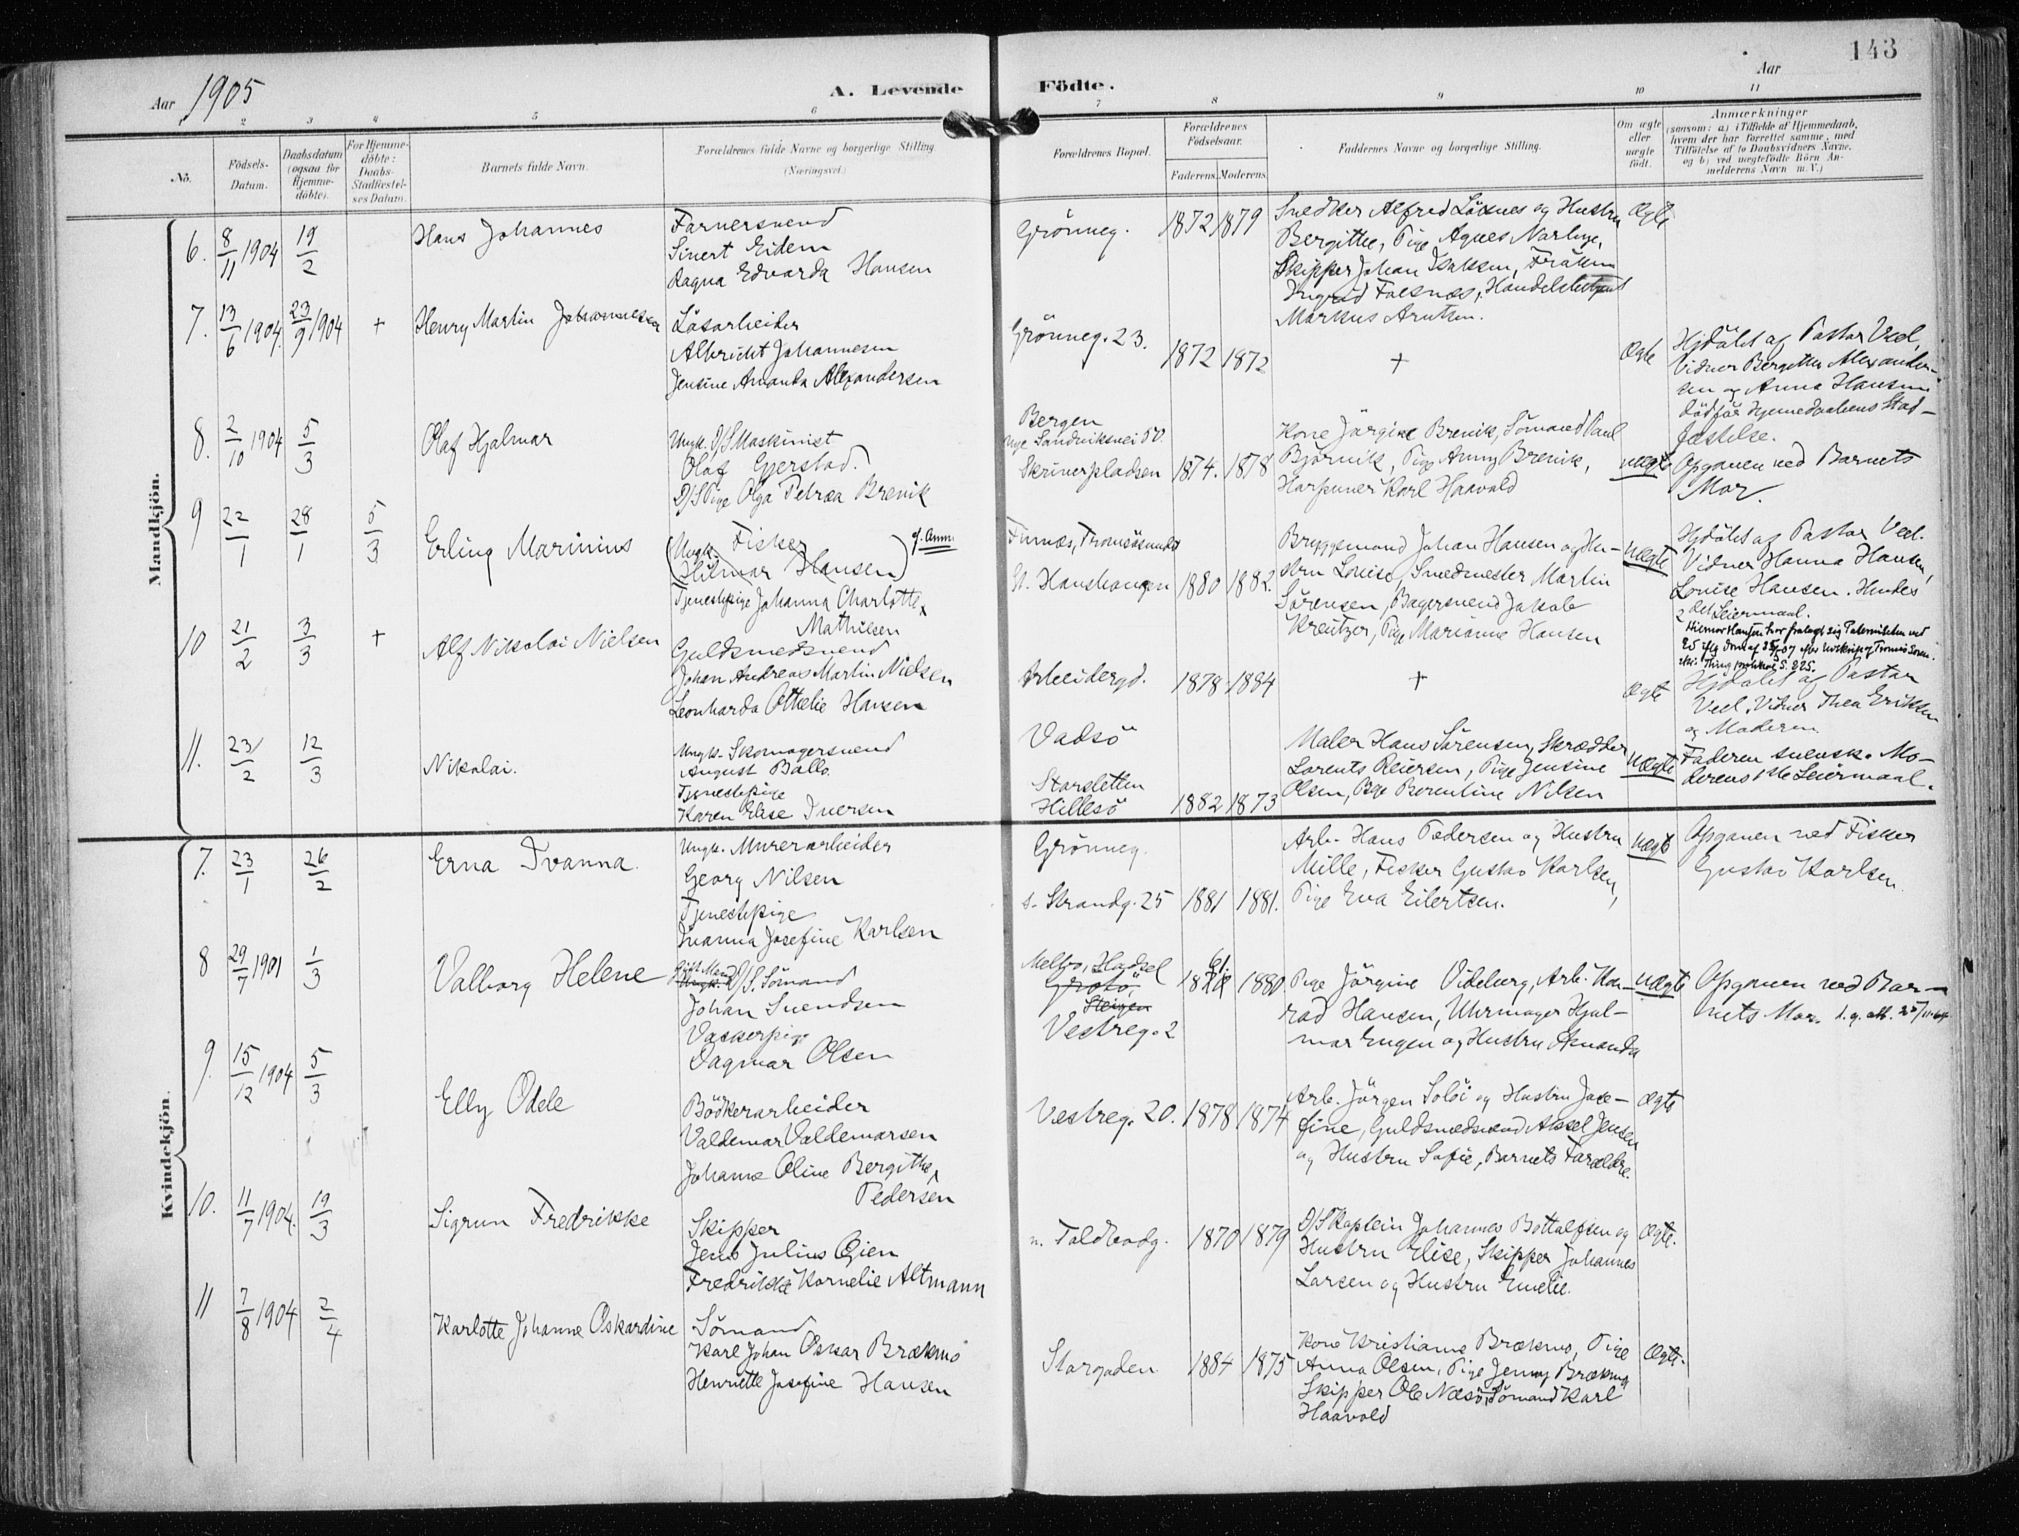 143
Aar 1905
A. Levende
Födte.
Aar
1 2 3 4 5 6 7 8 9 10 11
No.
Födsels-Datum.
Daabsdatum (ogsaa for Hjemme-döbte).
For Hjemme-döbte: Daabs-Stadfæstel-ses Datum.
Barnets fulde Navn.
Forældrenes fulde Navne og borgerlige Stilling
(Næringsvei.)
Forældrenes Bopæl.
Forældrenes Födselsaar.
Faderens. Moderens.
Faddernes Navne og borgerlige Stilling.
Om ægte eller uægte födt.
Anmærkninger
(saasom: a.) i Tilfælde af Hjemmedaab, hvem der har forrettet samme, med Tilföielse af to Daabsvidners Navne, og b) ved uægtefödte Börn Anmelderens Navn m. V.)
Mandkjön.
6. 8/11 1904 19/2
Hans Johannes
Farversvend
Sivert Eidem
Ragna Edvarda Hansen
Grönneg. 1872 1879
Snedker Alfred Löxnes og Hustru
Bergitthe, Pige Agnes
Skipper Johan Isaksen, Fröken
Ingrid Falsnæs, Handelsbetjent
Markus Arntsen.
Ægte
7. 13/6 1904 23/9 1904 +
Henry Martin Johannessen
Lösarbeider
Albricht Johannesen
Jensine Amanda Alexandersen
Grönneg. 23. 1872 1872
+
Ægte
Hjdöbt af Pastor Veel,
Vidner Bergitthe Alexander-
sen og Anna Hansen.
Död för Hjemmedaabens Stad-
fæstelse.
8. 2/10 1904 5/3
Olaf Hjalmar
Ungk. D/S Maskinist
Olaf Gjerstad.
D/S Pige Olga Petræa Brevik
Bergen
Nye Sandviksvei 50.
Skriverpladsen 1874. 1878
Kone Jörgine Brevik, Sömand Paul
Björnvik, Pige Anny Brevik,
Harpuner Karl Haavold
uægte
Opgaven ved Barnets
Mor.
9 22/1 28/1 5/3
Erling Marinius
(Ungk. Fisker
Hilmar Hansen) cf. Anm.
Tjenestepige Johanna Charlotte
Mathilsen
Finnæs, Tromsösundet
St. Hanshaugen 1880 1882.
Bryggemand Johan Hansen og Hu-
stru Louise, Smedmester Martin
Sörensen, Bagersvend Jakob
Kreutzer, Pige Marianne Hansen
Uægte
Hjdöbt af Pastor Veel.
Vidner Hanna Hansen,
Louise Hansen. Hendes
2det Leiermaal.
Hilmar Hansen har fralagt sig Paterniteten ved
10 21/2 3/3 +
Alf Nikolai Nielsen
Guldsmedsvend
Johan Andreas Martin Nielsen
Leonharda Ottelie Hansen
Arbeidergd. 1878 1884
+
Ægte
Hjdöbt af Pastor
Veel. Vidner Thea Eriksen
og Moderen.
11. 23/2 12/3
Nikolai.
Ungk. Skomagersvend
August Ballo.
Tjenestepige
Karen Elise Iversen
Vadsö
Storsletten
Hillesö 1882 1873
Maler Hans Sörensen, Skrædder
Lorents Reiersen, Pige Jensine
Olsen, Pige Berentine Nilsen
Uægte
Faderen svensk. Mo-
derens 1ste Leiermaal.
Kvindekjön.
7. 23/1 26/2
Erna Ivanna.
Ungk. Murerarbeider
Georg Nilsen
Tjenestepige
Ivanna Josefine Karlsen
Grönneg.
s. Strandg. 25 1881 1881.
Arb. Hans Pedersen og Hustru
Mille, Fisker Gustav Karlsen,
Pige Eva Eilertsen.
Uægte
Opgaven ved Fisker
Gustav Karlsen.
8 29/7 1901 1/3
Valborg Helene
Gift Mand
Ungk. D/S. Sömand
Johan Svendsen
Vaskerpige
Dagmar Olsen
Melbo, Hadsel
Grotö,
Steigen
Vestreg. 2 1861 1880
Pige Jörgine Videberg, Arb. Kon-
rad Hansen, Uhrmager Hjal-
mar Engen og Hustru Amanda
Uægte
Opgaven ved Bar-
nets Mor.
9. 15/12 1904 5/3
Elly Odele
Bödkerarbeider
Valdemar Valdemarsen
Johanne Oline Bergitthe
Pedersen
Vestreg. 20. 1878 1874
Arb. Jörgen Solöi og Hustru Jose-
fine, Guldsmedsvend Aksel Jensen
og Hustru Sofie, Barnets Forældre.
Ægte
10. 11/7 1904. 19/3
Sigrun Fredrikke
Skipper
Jens Julius Öien
Fredrikke Kornelie Altmann
n. Toldbodg. 1870 1879
D/S Kaptein Johannes Bottolfsen og
Hustru Elise, Skipper Johannes
Larsen og Hustru Emelie.
Ægte.
11 7/8 1904 2/4
Karlotte Johanne Oskardine
Sömand
Karl Johan Oskar Brækmo
Henriette Josefine Hansen
Storgaden 1884 1875
Kone Kristianne Brækmo, Pige
Anna Olsen, Pige Jenny Brækmo
Skipper Ole Næsö, Sömand Karl
Haavold
Ægte.